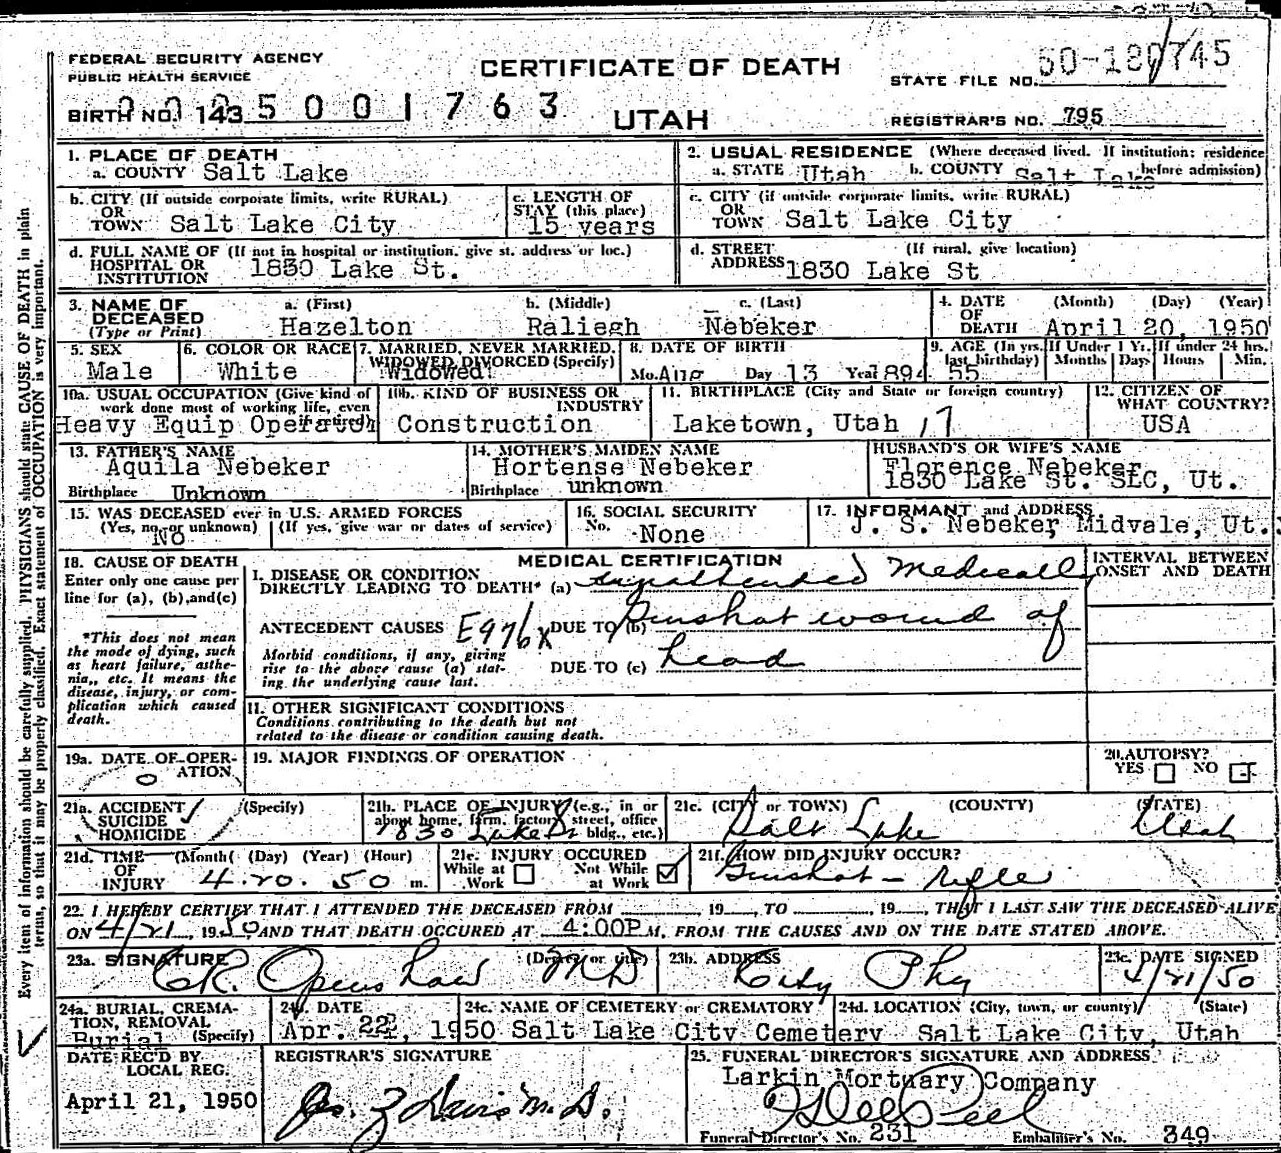 FEDERAL SECURITY AGENCY
PUBLIC HEALTH SERVICE
CERTIFICATE OF DEATH
UTAH
STATE FILE NO.
BIRTH NO. 143 5 0 0 1 7 6 3
REGISTRAR'S NO. 795
1. PLACE OF DEATH
a. COUNTY Salt Lake
2. USUAL RESIDENCE (Where deceased lived. If institution: residence before admission)
a. STATE Utah b. COUNTY Salt Lake
b. CITY (If outside corporate limits, write RURAL)
OR
TOWN Salt Lake City
c. LENGTH OF STAY (this place)
15 years
c. CITY (if outside corporate limits, write RURAL)
OR
TOWN Salt Lake City
d. FULL NAME OF (If not in hospital or institution, give st. address or loc.)
HOSPITAL OR
INSTITUTION 1830 Lake St.
d. STREET (If rural, give location)
ADDRESS 1830 Lake St
3. NAME OF DECEASED
(Type or Print)
a. (First) b. (Middle) c. (Last)
Hazelton Raliegh Nebeker
4. DATE OF DEATH (Month) (Day) (Year)
April 20, 1950
5. SEX
Male
6. COLOR OR RACE
White
7. MARRIED, NEVER MARRIED, WIDOWED, DIVORCED (Specify)
Widowed
8. DATE OF BIRTH
Mo. Aug Day 13 Year 1894
9. AGE (In yrs. last birthday) If Under 1 Yr. If under 24 hrs.
Months Days Hours Min.
55
10a. USUAL OCCUPATION (Give kind of work done most of working life, even
Heavy Equip Operator
10b. KIND OF BUSINESS OR INDUSTRY
Construction
11. BIRTHPLACE (City and State or foreign country)
Laketown, Utah 17
12. CITIZEN OF WHAT COUNTRY?
USA
13. FATHER'S NAME
Aquila Nebeker
Birthplace Unknown
14. MOTHER'S MAIDEN NAME
Hortense Nebeker
Birthplace unknown
HUSBAND'S OR WIFE'S NAME
Florence Nebeker
1830 Lake St. SLC, Ut.
15. WAS DECEASED ever in U.S. ARMED FORCES
(Yes, no, or unknown) (If yes, give war or dates of service)
No
16. SOCIAL SECURITY
No. None
17. INFORMANT and ADDRESS
J. S. Nebeker, Midvale, Ut.
18. CAUSE OF DEATH
Enter only one cause per line for (a), (b), and (c)
*This does not mean the mode of dying, such as heart failure, asthenia, etc. It means the disease, injury, or complication which caused death.
MEDICAL CERTIFICATION
I. DISEASE OR CONDITION
DIRECTLY LEADING TO DEATH* (a) unattended Medically
ANTECEDENT CAUSES E976X DUE TO (b) Gunshot wound of
Morbid conditions, if any, giving rise to the above cause (a) stating the underlying cause last.
DUE TO (c) head
INTERVAL BETWEEN ONSET AND DEATH
II. OTHER SIGNIFICANT CONDITIONS
Conditions contributing to the death but not related to the disease or condition causing death.
19a. DATE OF OPERATION
0
19. MAJOR FINDINGS OF OPERATION
20. AUTOPSY?
YES NO
21a. ACCIDENT (Specify)
SUICIDE
HOMICIDE
21b. PLACE OF INJURY (e.g., in or about home, farm, factory, street, office bldg., etc.)
1830 Lake St
21c. (CITY or TOWN) (COUNTY) (STATE)
Salt Lake Utah
21d. TIME OF INJURY (Month) (Day) (Year) (Hour)
4. 20. 50 m.
21e. INJURY OCCURED
While at Work Not While at Work
21f. HOW DID INJURY OCCUR?
Gunshot - rifle
22. I HEREBY CERTIFY THAT I ATTENDED THE DECEASED FROM , 19 , TO , 19 , THAT I LAST SAW THE DECEASED ALIVE
ON 4/21, 1950, AND THAT DEATH OCCURED AT 4:00P M, FROM THE CAUSES AND ON THE DATE STATED ABOVE.
23a. SIGNATURE (Degree or title)
MD
23b. ADDRESS
City Phy
23c. DATE SIGNED
4/21/50
24a. BURIAL, CREMATION, REMOVAL (Specify)
Burial
24b. DATE
Apr. 22, 1950
24c. NAME OF CEMETERY or CREMATORY
Salt Lake City Cemetery
24d. LOCATION (City, town, or county) (State)
Salt Lake City, Utah
DATE REC'D BY LOCAL REG.
April 21, 1950
REGISTRAR'S SIGNATURE
25. FUNERAL DIRECTOR'S SIGNATURE AND ADDRESS
Larkin Mortuary Company
Funeral Director's No. 231 Embalmer's No. 349
Every item of information should be carefully supplied. PHYSICIANS should state CAUSE OF DEATH in plain
terms, so that it may be properly classified. Exact statement of OCCUPATION is very important.